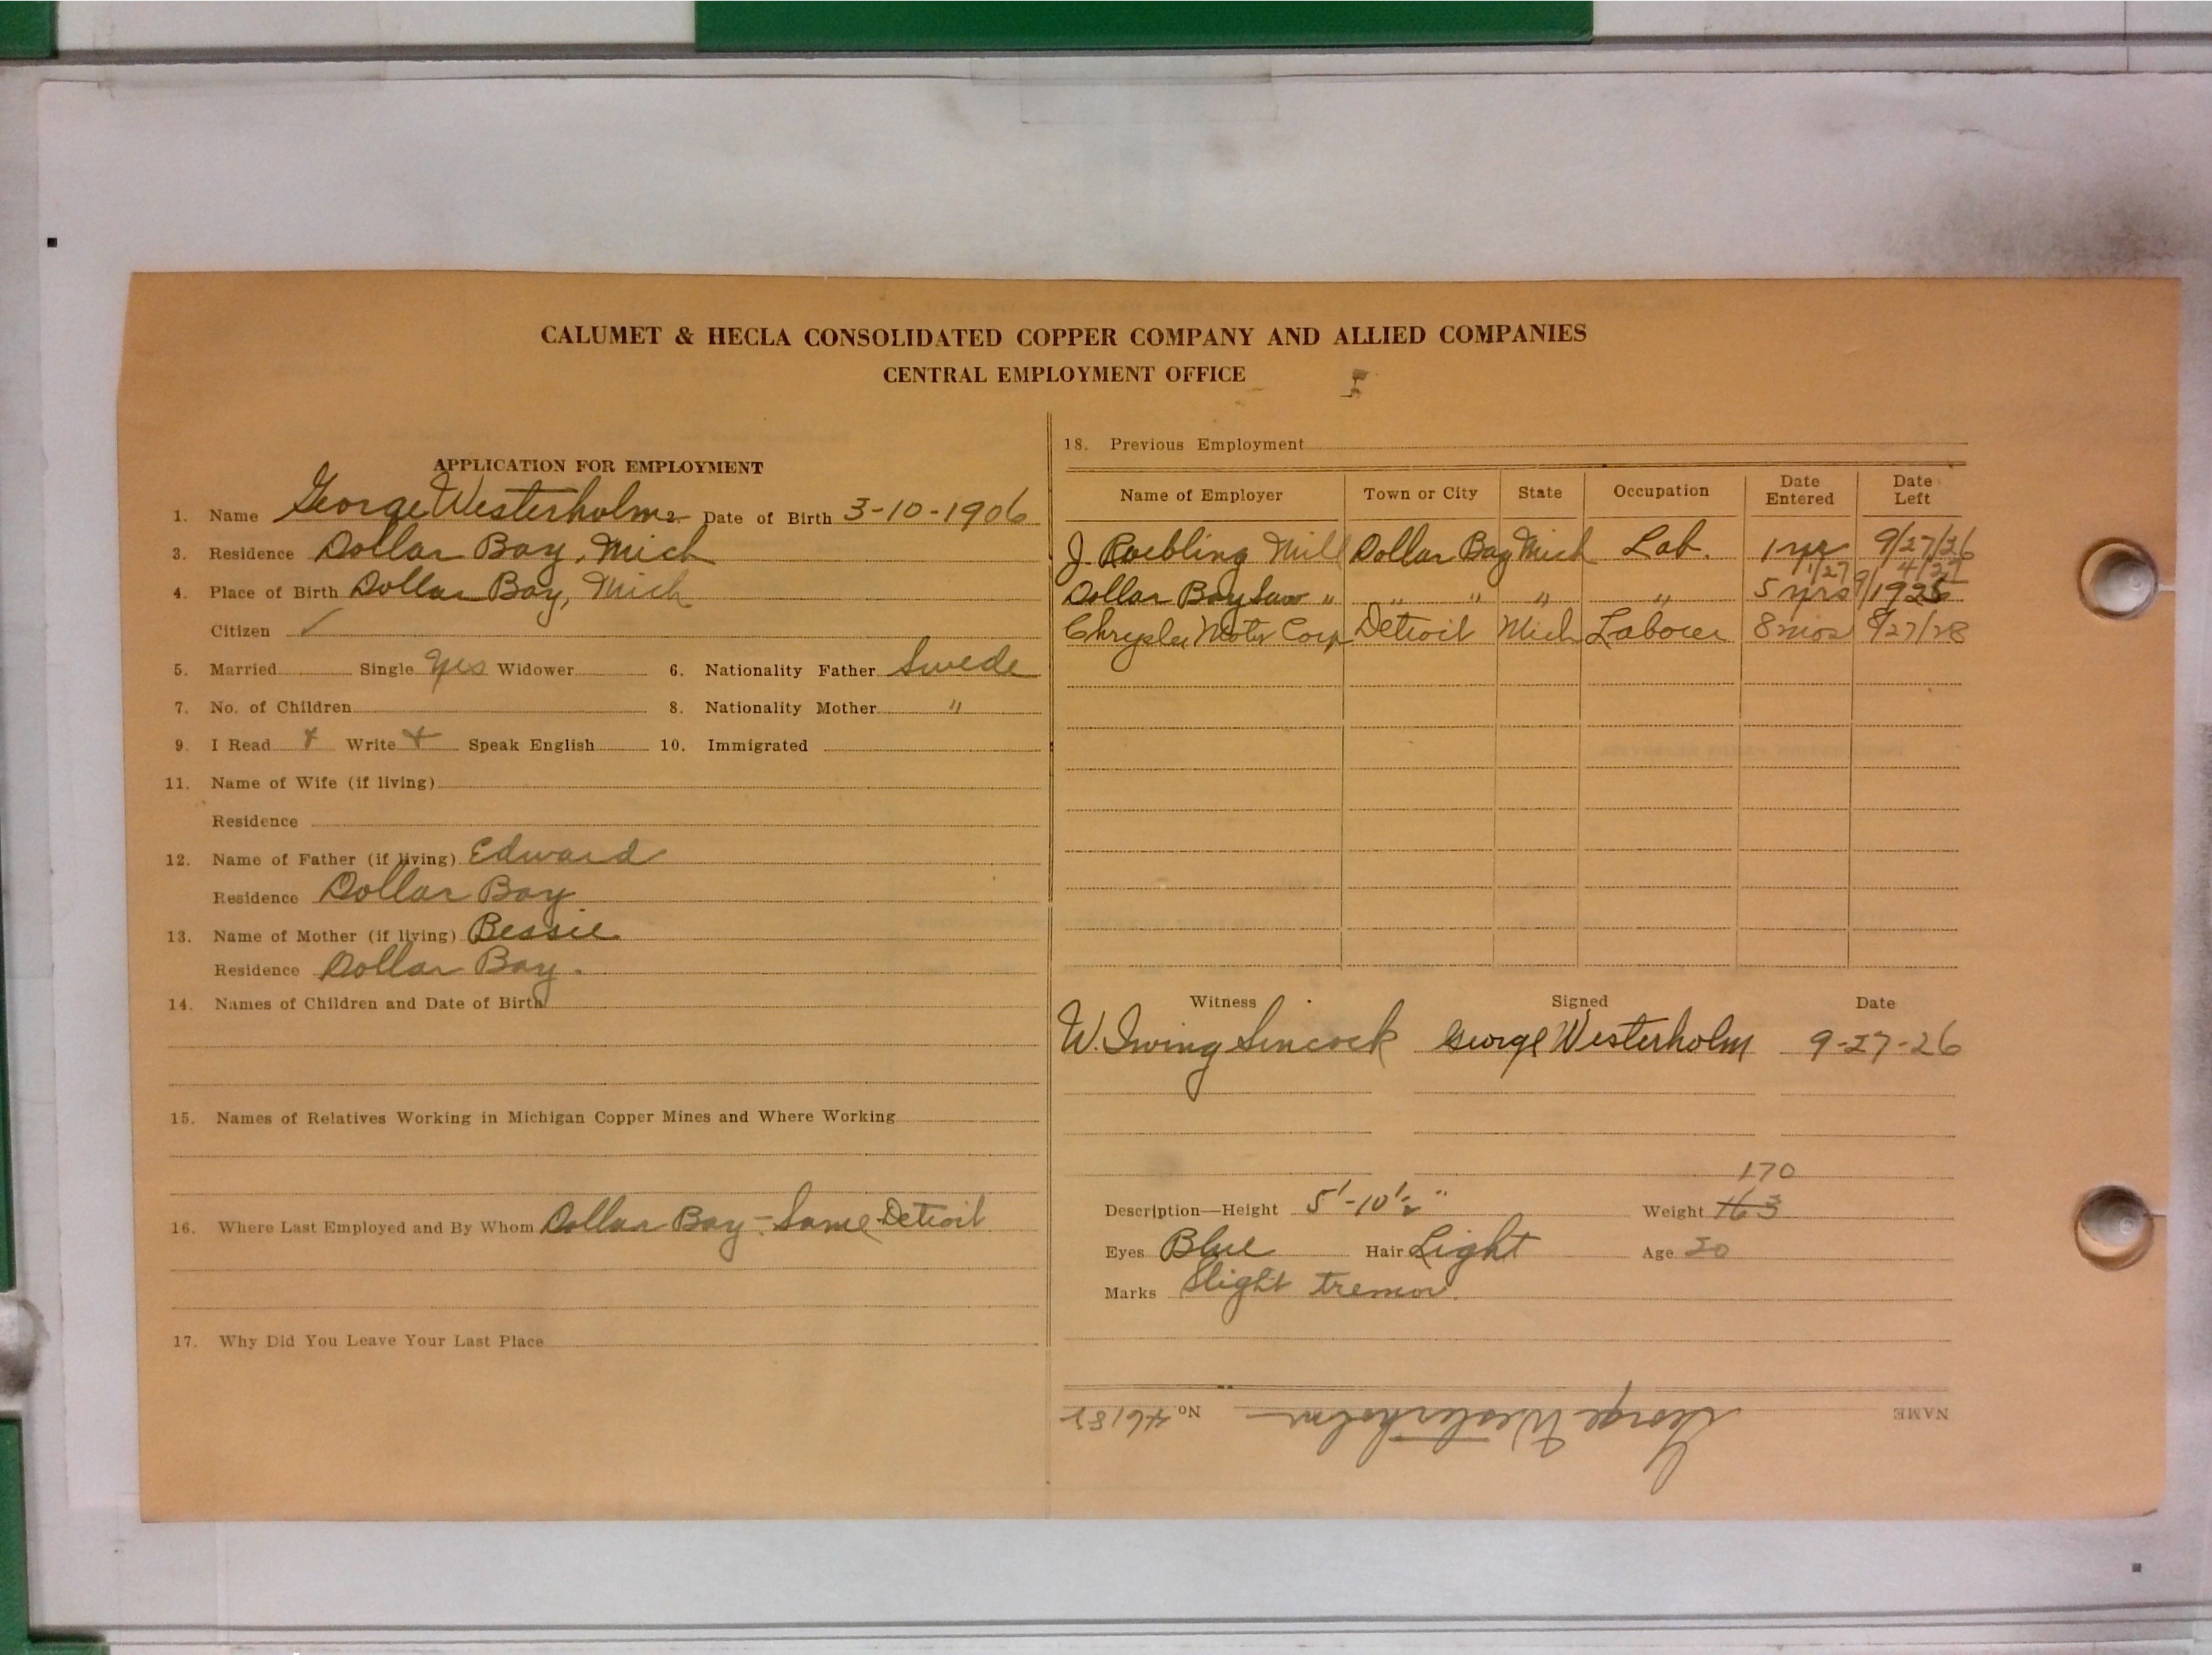 CALUMET & HECLA CONSOLIDATED COPPER COMPANY AND ALLIED COMPANIES
CENTRAL EMPLOYMENT OFFICE
APPLICATION FOR EMPLOYMENT
1. Name George Westerholm 2. Date of Birth 3-10-1906
3. Residence Dollar Bay, Mich
4. Place of Birth Dollar Bay, Mich
Citizen ✓
5. Married Single yes Widower 6. Nationality Father Swede
7. No. of Children 8. Nationality Mother "
9. I Read + Write + Speak English 10. Immigrated
11. Name of Wife (if living)
Residence
12. Name of Father (if living) Edward
Residence Dollar Bay
13. Name of Mother (if living) Bessie
Residence Dollar Bay.
14. Names of Children and Date of Birth
15. Names of Relatives Working in Michigan Copper Mines and Where Working
16. Where Last Employed and By Whom Dollar Bay - Same Detroit
17. Why Did You Leave Your Last Place
18. Previous Employment
Name of Employer Town or City State Occupation Date Entered Date Left
J. Roebling Mill Dollar Bay Mich Lab. 1 yr 9/27/26
1/27
Dollar Bay Saw " " " " " 5 yrs
Chrysler Motor Corp Detroit Mich Laborer 8 mos 8/27/28
Witness Signed Date
W. Irving Sincock George Westerholm 9-27-26
170
Description—Height 5'-10½" Weight 163
Eyes Blue Hair Light Age 20
Marks Slight tremor.
NAME George Westerholm No. 46182